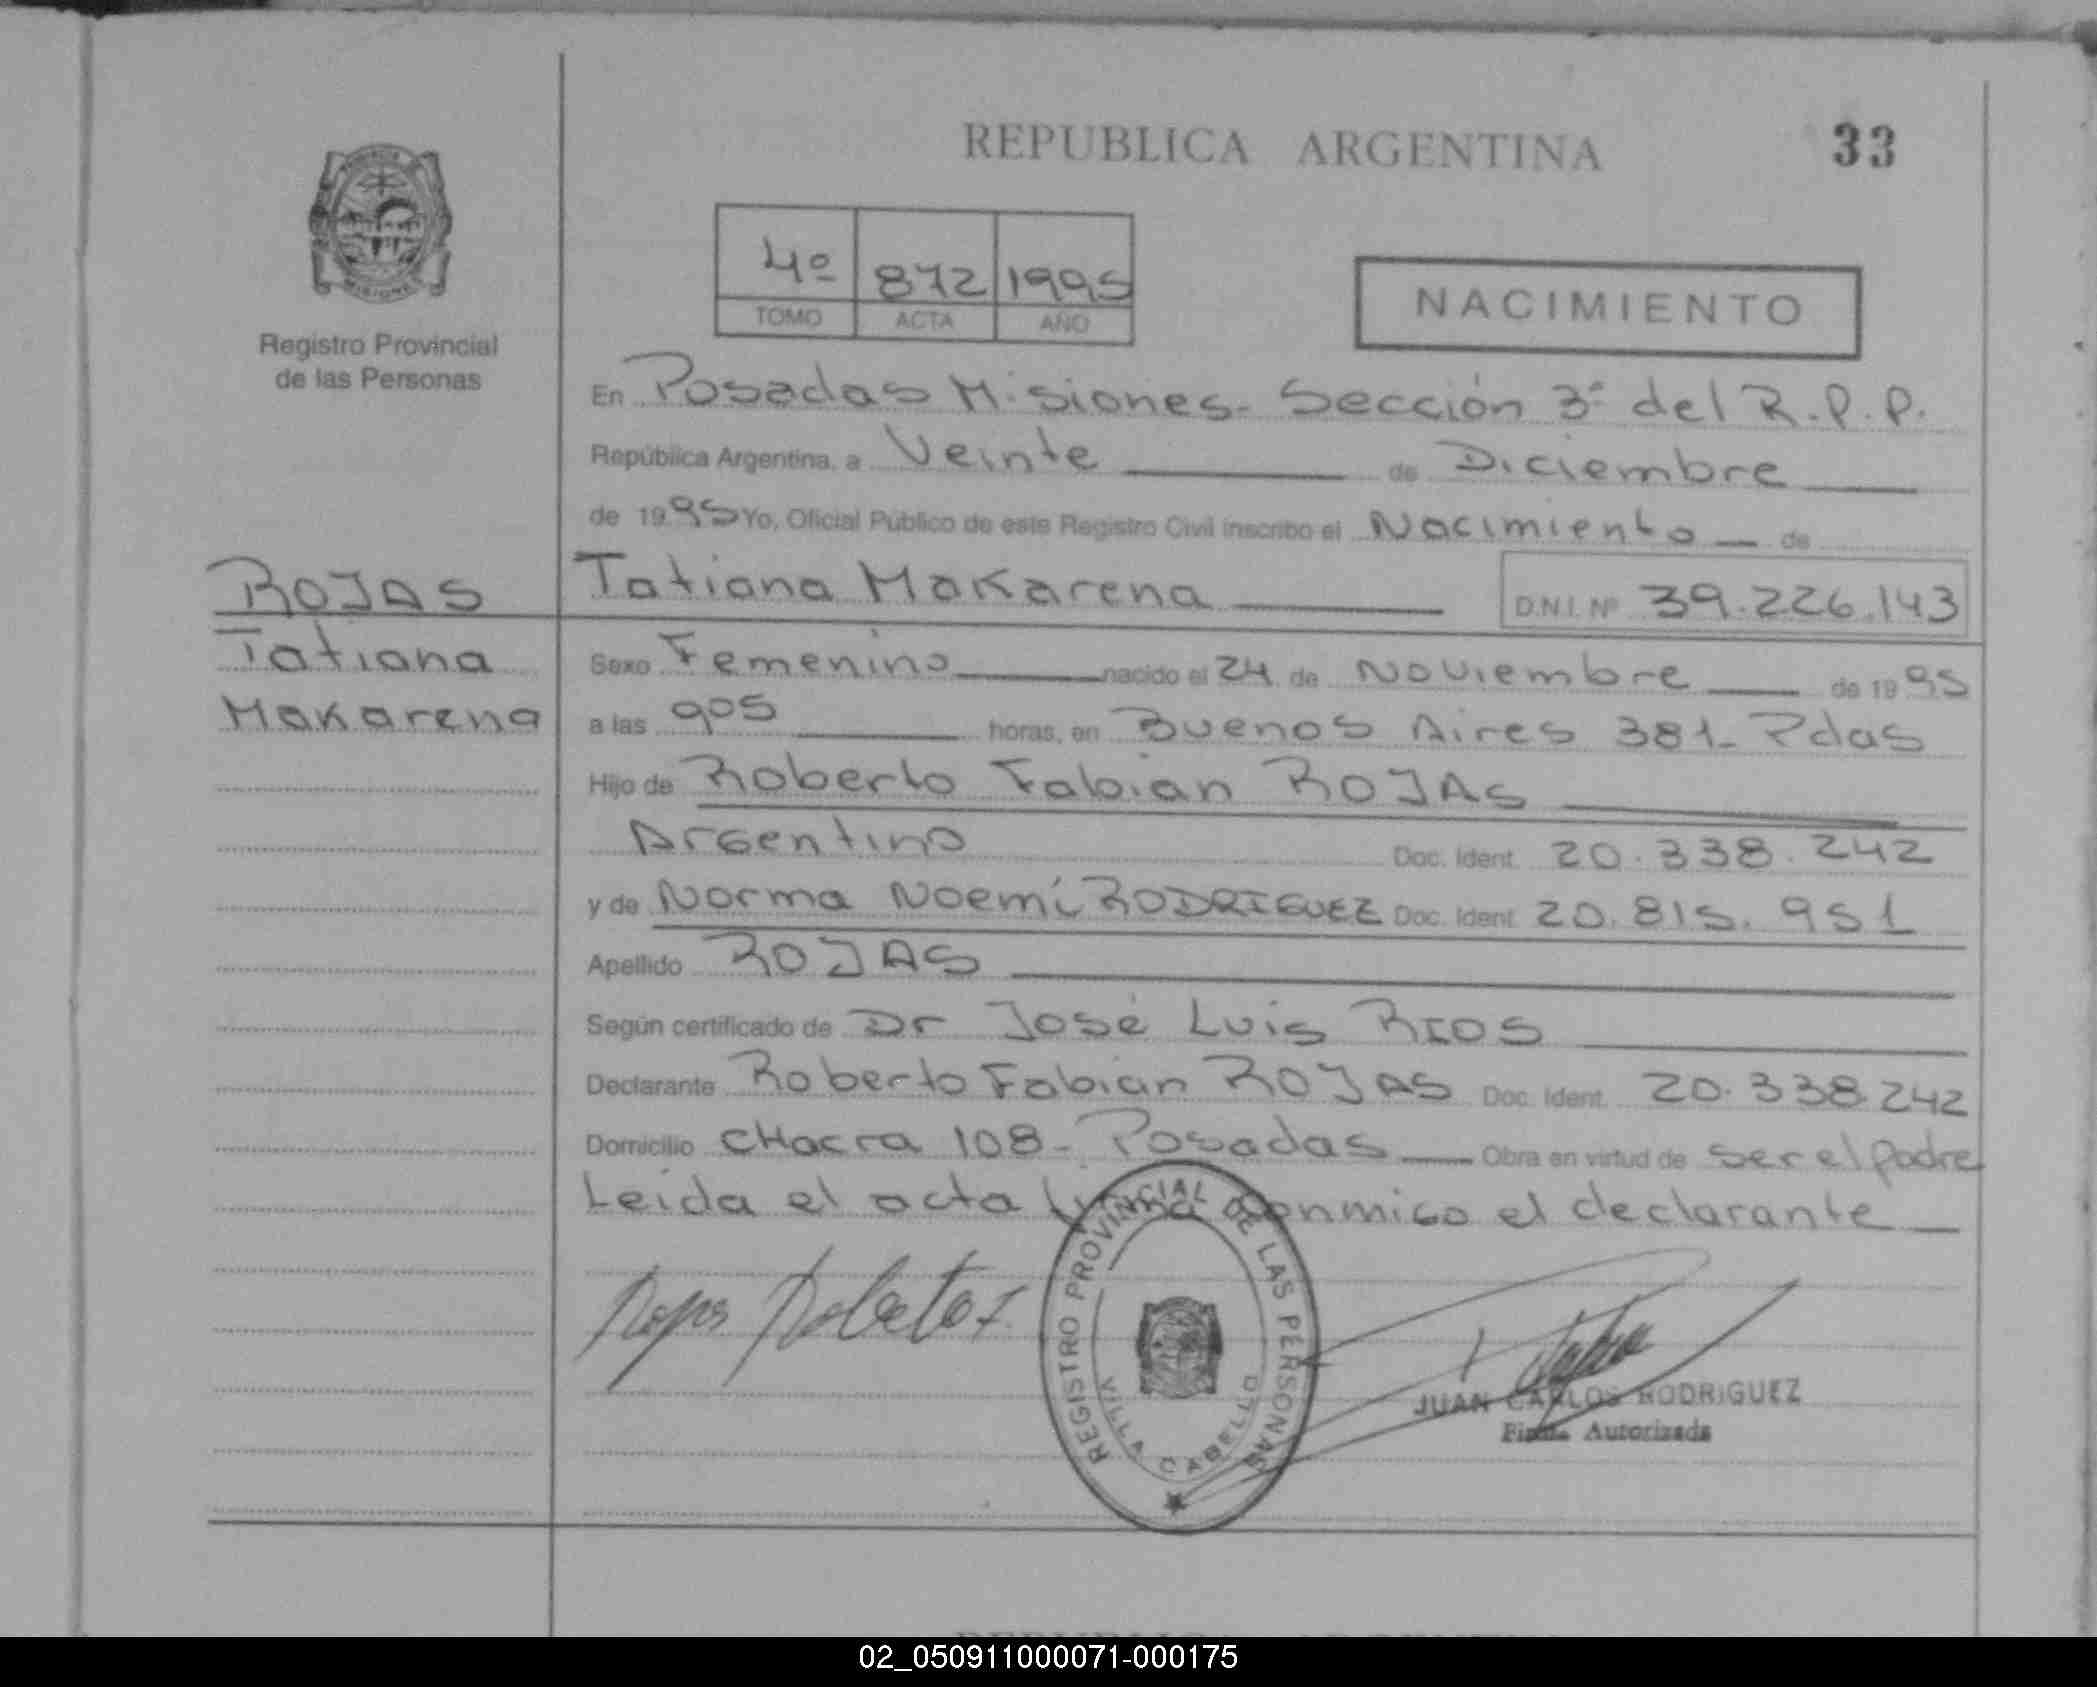 REPUBLICA ARGENTINA 33
PROVINCIA
MISIONES
Registro Provincial
de las Personas
4º 872 1995
TOMO ACTA AÑO
NACIMIENTO
En Posadas Misiones - Sección 3ª del R.P.P.
República Argentina, a Veinte de Diciembre
de 1995 Yo, Oficial Público de este Registro Civil inscribo el Nacimiento de
ROJAS
Tatiana
Makarena
Tatiana Makarena D.N.I. Nº 39.226.143
Sexo Femenino nacido el 24 de Noviembre de 1995
a las 905 horas, en Buenos Aires 381- Pdas
Hijo de Roberto Fabian ROJAS
Argentino Doc. Ident. 20.338.242
y de Norma Noemí RODRIGUEZ Doc. Ident. 20.815.951
Apellido ROJAS
Según certificado de Dr José Luis RIOS
Declarante Roberto Fabian ROJAS Doc. Ident. 20.338.242
Domicilio CHacra 108 - Posadas Obra en virtud de ser el padre
Leida el acta firma conmigo el declarante
Rojas Roberto F.
REGISTRO PROVINCIAL DE LAS PERSONAS
VILLA CABELLO
JUAN CARLOS RODRIGUEZ
Firma Autorizada
02_050911000071-000175